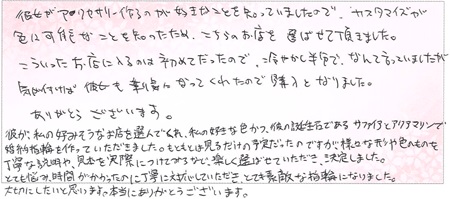 彼女がアクセサリー作るのが好きなことを知っていましたので、カスタマイズが
色々可能なことを知ったため、こちらのお店を選ばせて頂きました。
こういったお店に入るのは初めてだったので、冷やかし半分で、なんて言っていましたが
気が付けば彼女も乗り気になってくれたので購入となりました。
ありがとうございます。
彼が、私の好みそうなお店を選んでくれ、私の好きな色かつ、彼の誕生石であるサファイアとアクアマリンで
婚約指輪を作っていただきました。もともとは見るだけの予定だったのですが様々な形や色のものを
丁寧な説明や、見本を実際につけてみるなどで、楽しく選ばせていただき、決定しました。
とても悩み、時間がかかったのに丁寧に対応していただき、とても素敵な指輪になりました。
大切にしたいと思います。本当にありがとうございます。